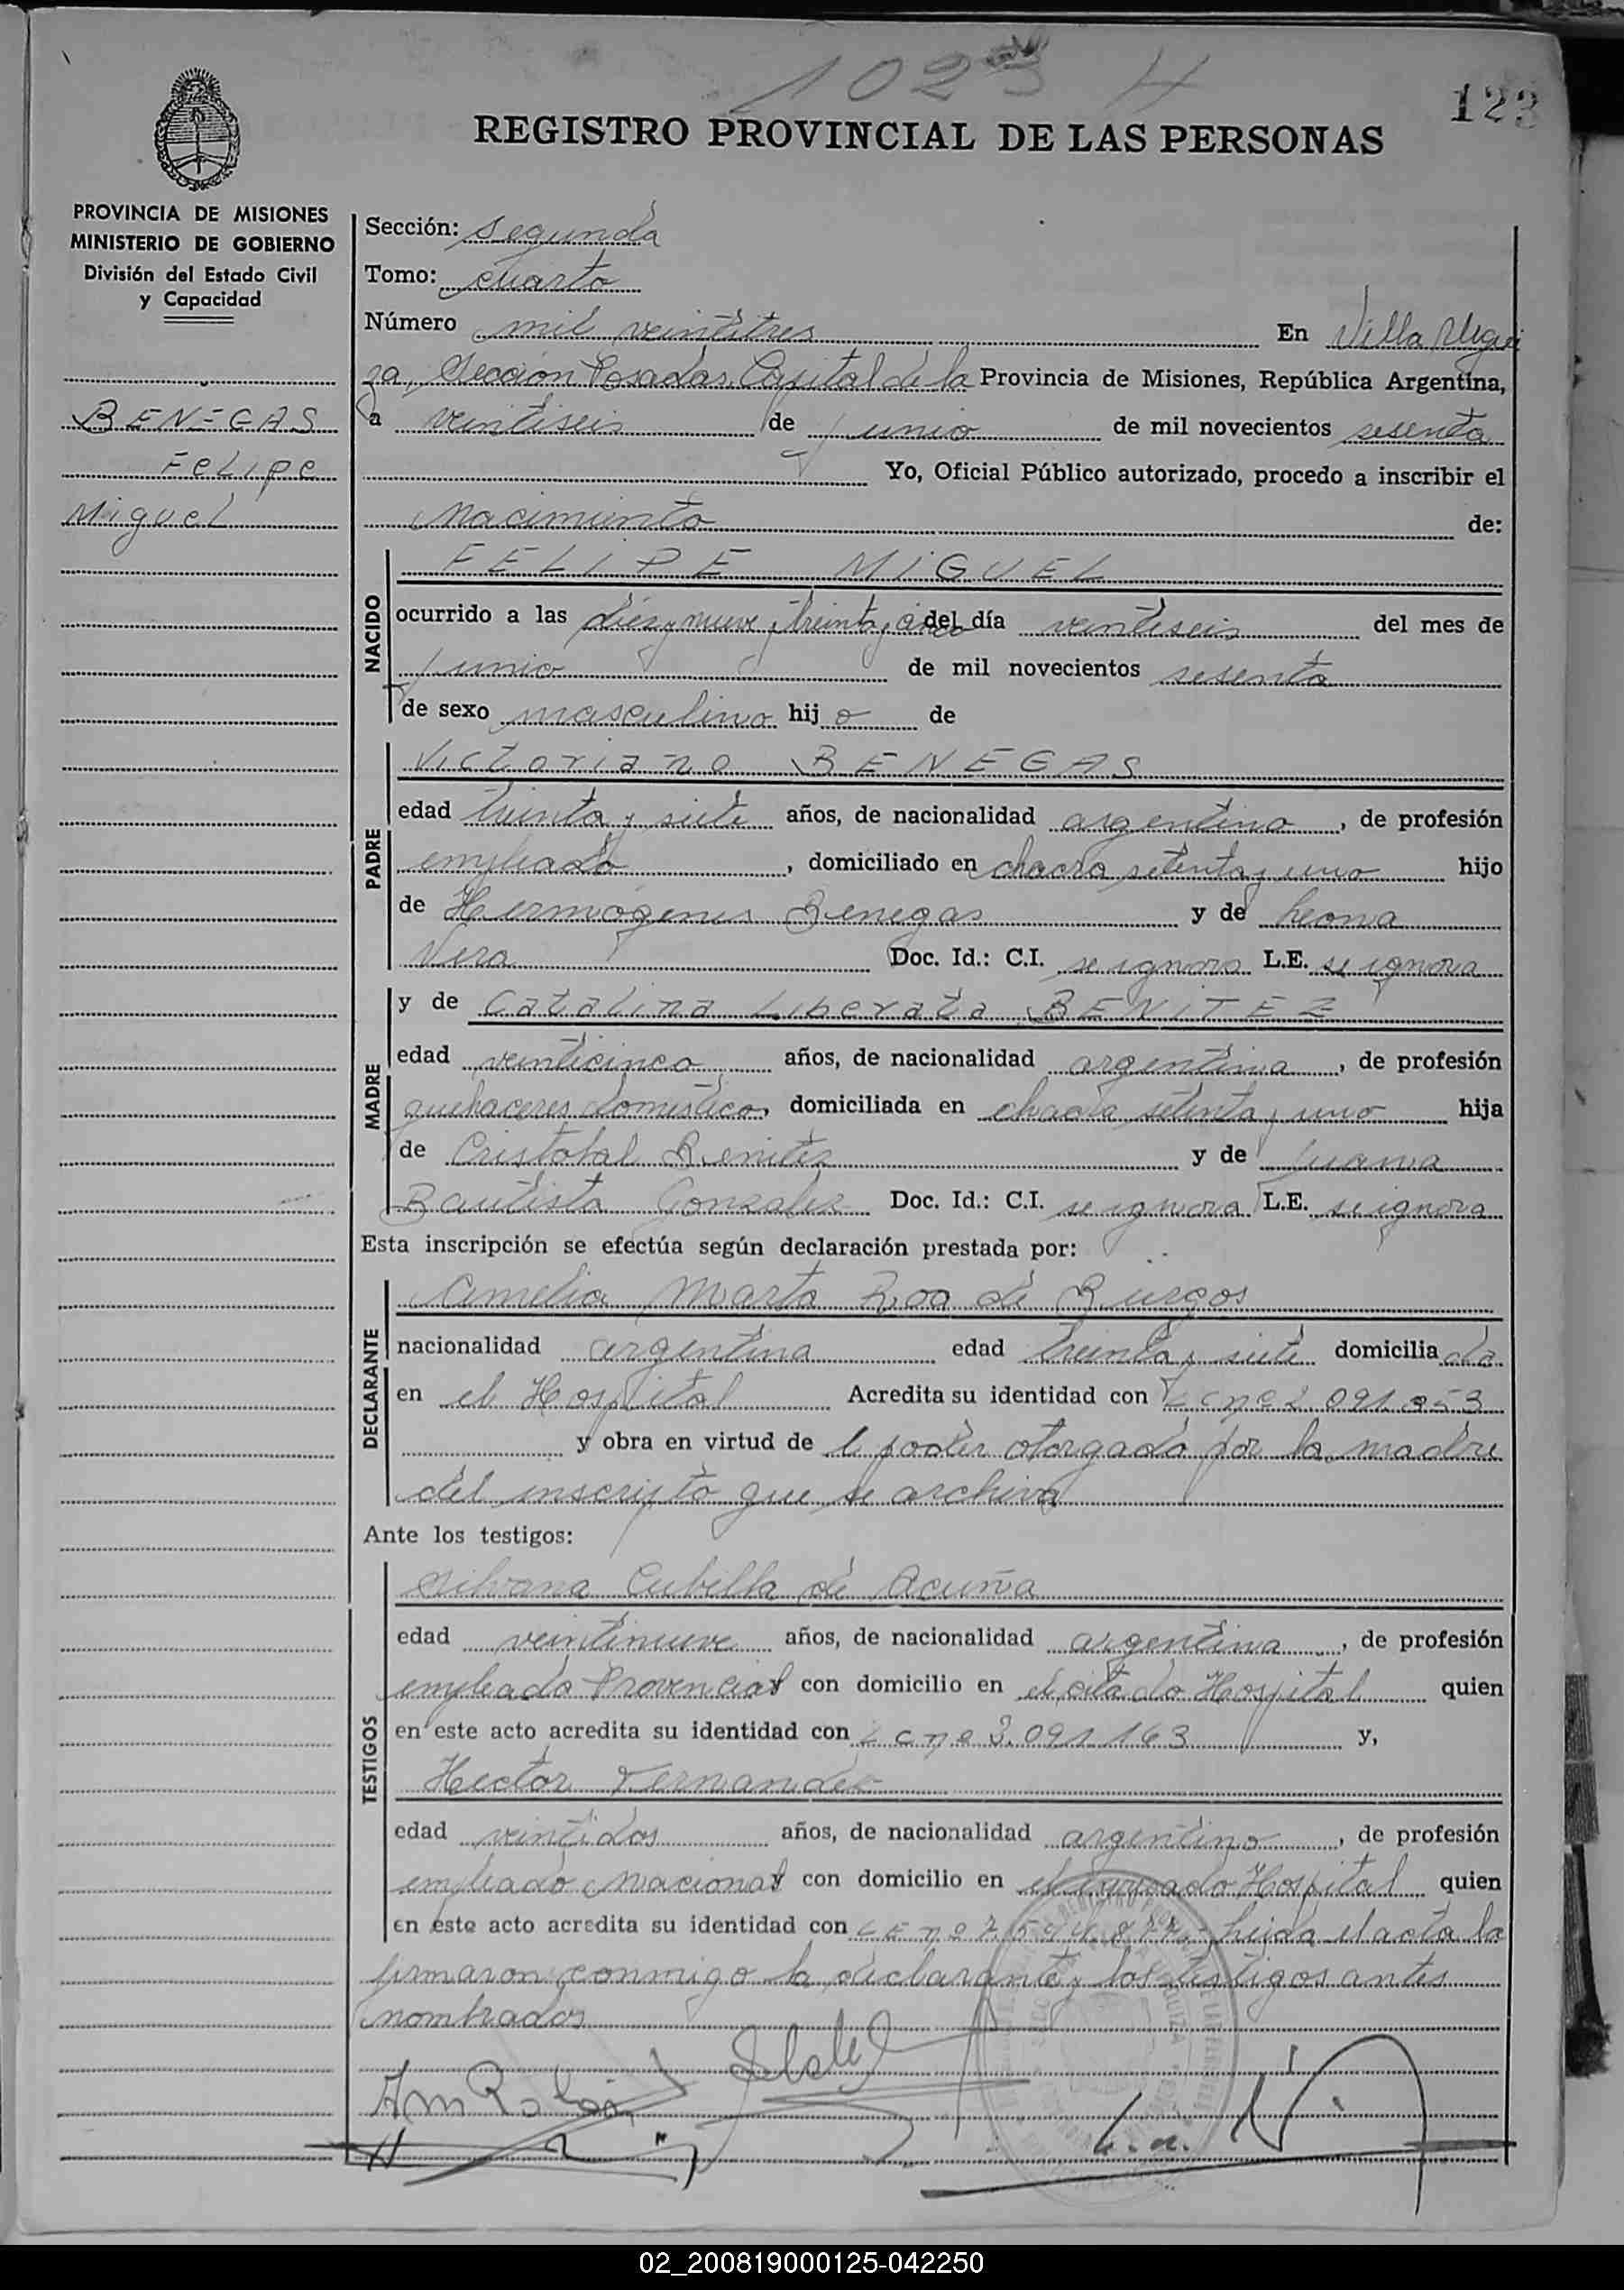 1023 H
123
REGISTRO PROVINCIAL DE LAS PERSONAS
PROVINCIA DE MISIONES
MINISTERIO DE GOBIERNO
División del Estado Civil
y Capacidad
BENEGAS
Felipe
Miguel
Sección: segunda
Tomo: cuarto
Número mil veintitres En Villa Urqui
za, Sección Posadas, Capital de la Provincia de Misiones, República Argentina,
a veintiseis de junio de mil novecientos sesenta
Yo, Oficial Público autorizado, procedo a inscribir el
Nacimiento de:
NACIDO
FELIPE MIGUEL
ocurrido a las diez y nueve y treinta y cinco del día veintiseis del mes de
junio de mil novecientos sesenta
de sexo masculino hijo de
PADRE
Victoriano BENEGAS
edad treinta y siete años, de nacionalidad argentino, de profesión
empleado, domiciliado en chacra setenta y uno hijo
de Hermogenes Benegas y de
Vera Doc. Id.: C.I. se ignora L.E. se ignora
MADRE
y de Catalina Liberata BENITEZ
edad veinticinco años, de nacionalidad argentina, de profesión
quehaceres domestico, domiciliada en chacra setenta y uno hija
de Cristobal Benitez y de Juana
Bautista Gonzalez Doc. Id.: C.I. se ignora L.E. se ignora
Esta inscripción se efectúa según declaración prestada por:
DECLARANTE
Amelia Marta Roa de Burgos
nacionalidad argentina edad treinta y siete domiciliada
en el Hospital Acredita su identidad con
y obra en virtud de l poder otorgado por la madre
del inscripto que se archiva
Ante los testigos:
TESTIGOS
Silvana Cubilla de Acuña
edad veintinueve años, de nacionalidad argentina, de profesión
empleada Provincial con domicilio en el citado Hospital quien
en este acto acredita su identidad con L C nº 3.091.163 y,
Hector Fernandez
edad veintidos años, de nacionalidad argentino, de profesión
empleado Nacional con domicilio en el Hospital quien
en este acto acredita su identidad con L E nº leída el acta la
firmaron conmigo la declarante y los testigos antes
nombrados
02_200819000125-042250